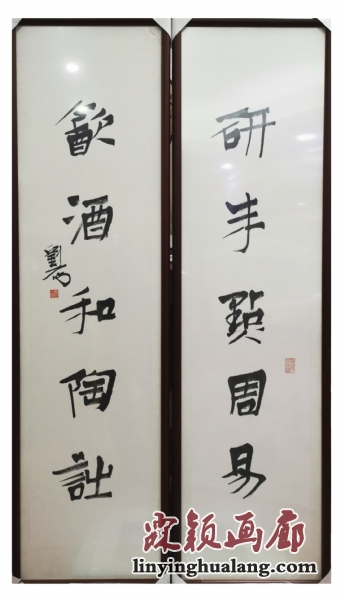 研朱點周易
飲酒和陶詩
劉
霖颖画廊
linyinghualang.com